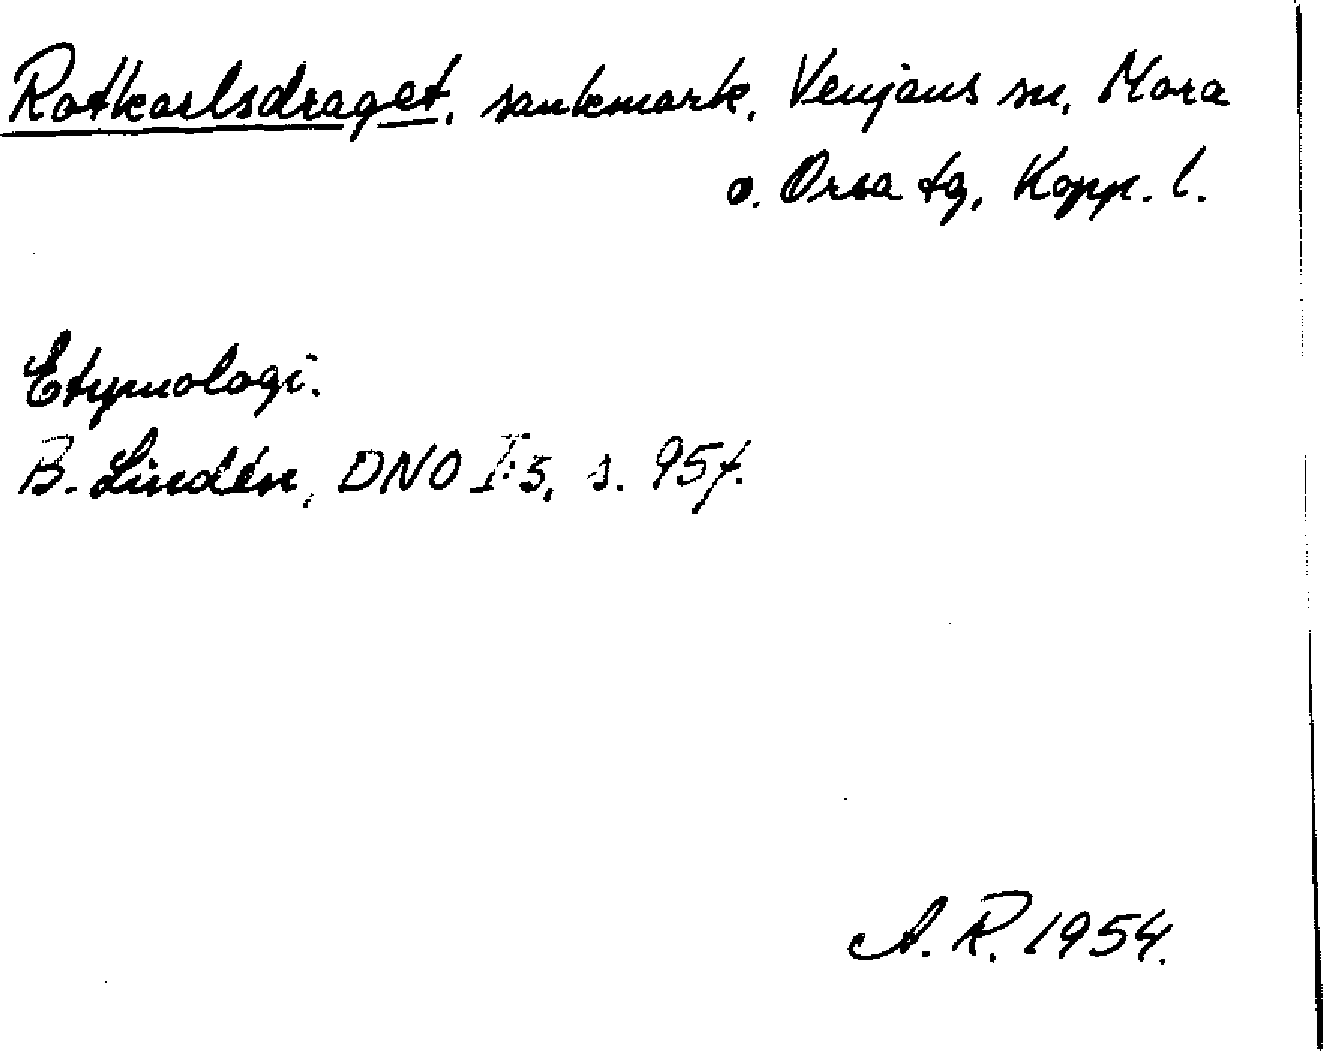 Rotkarlsdraget, sankmark, Venjans sn, Mora
o. Orsa tg, Kopp. l.
Etymologi.
B. Lindén, DNO I:5, s. 95f.
A. R. 1954.